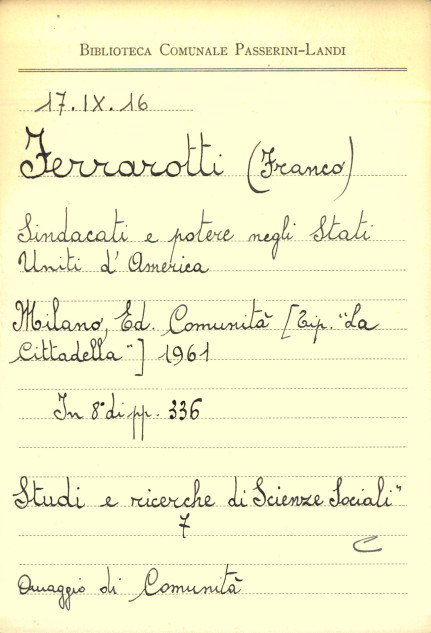 BIBLIOTECA COMUNALE PASSERINI-LANDI
17.IX.16
Ferrarotti (Franco)
Sindacati e potere negli Stati
Uniti d'America
Milano, Ed. Comunità [Tip. "La
Cittadella"] 1961
In 8° di pp. 336
Studi e ricerche di Scienze Sociali"
7
C
Omaggio di Comunità